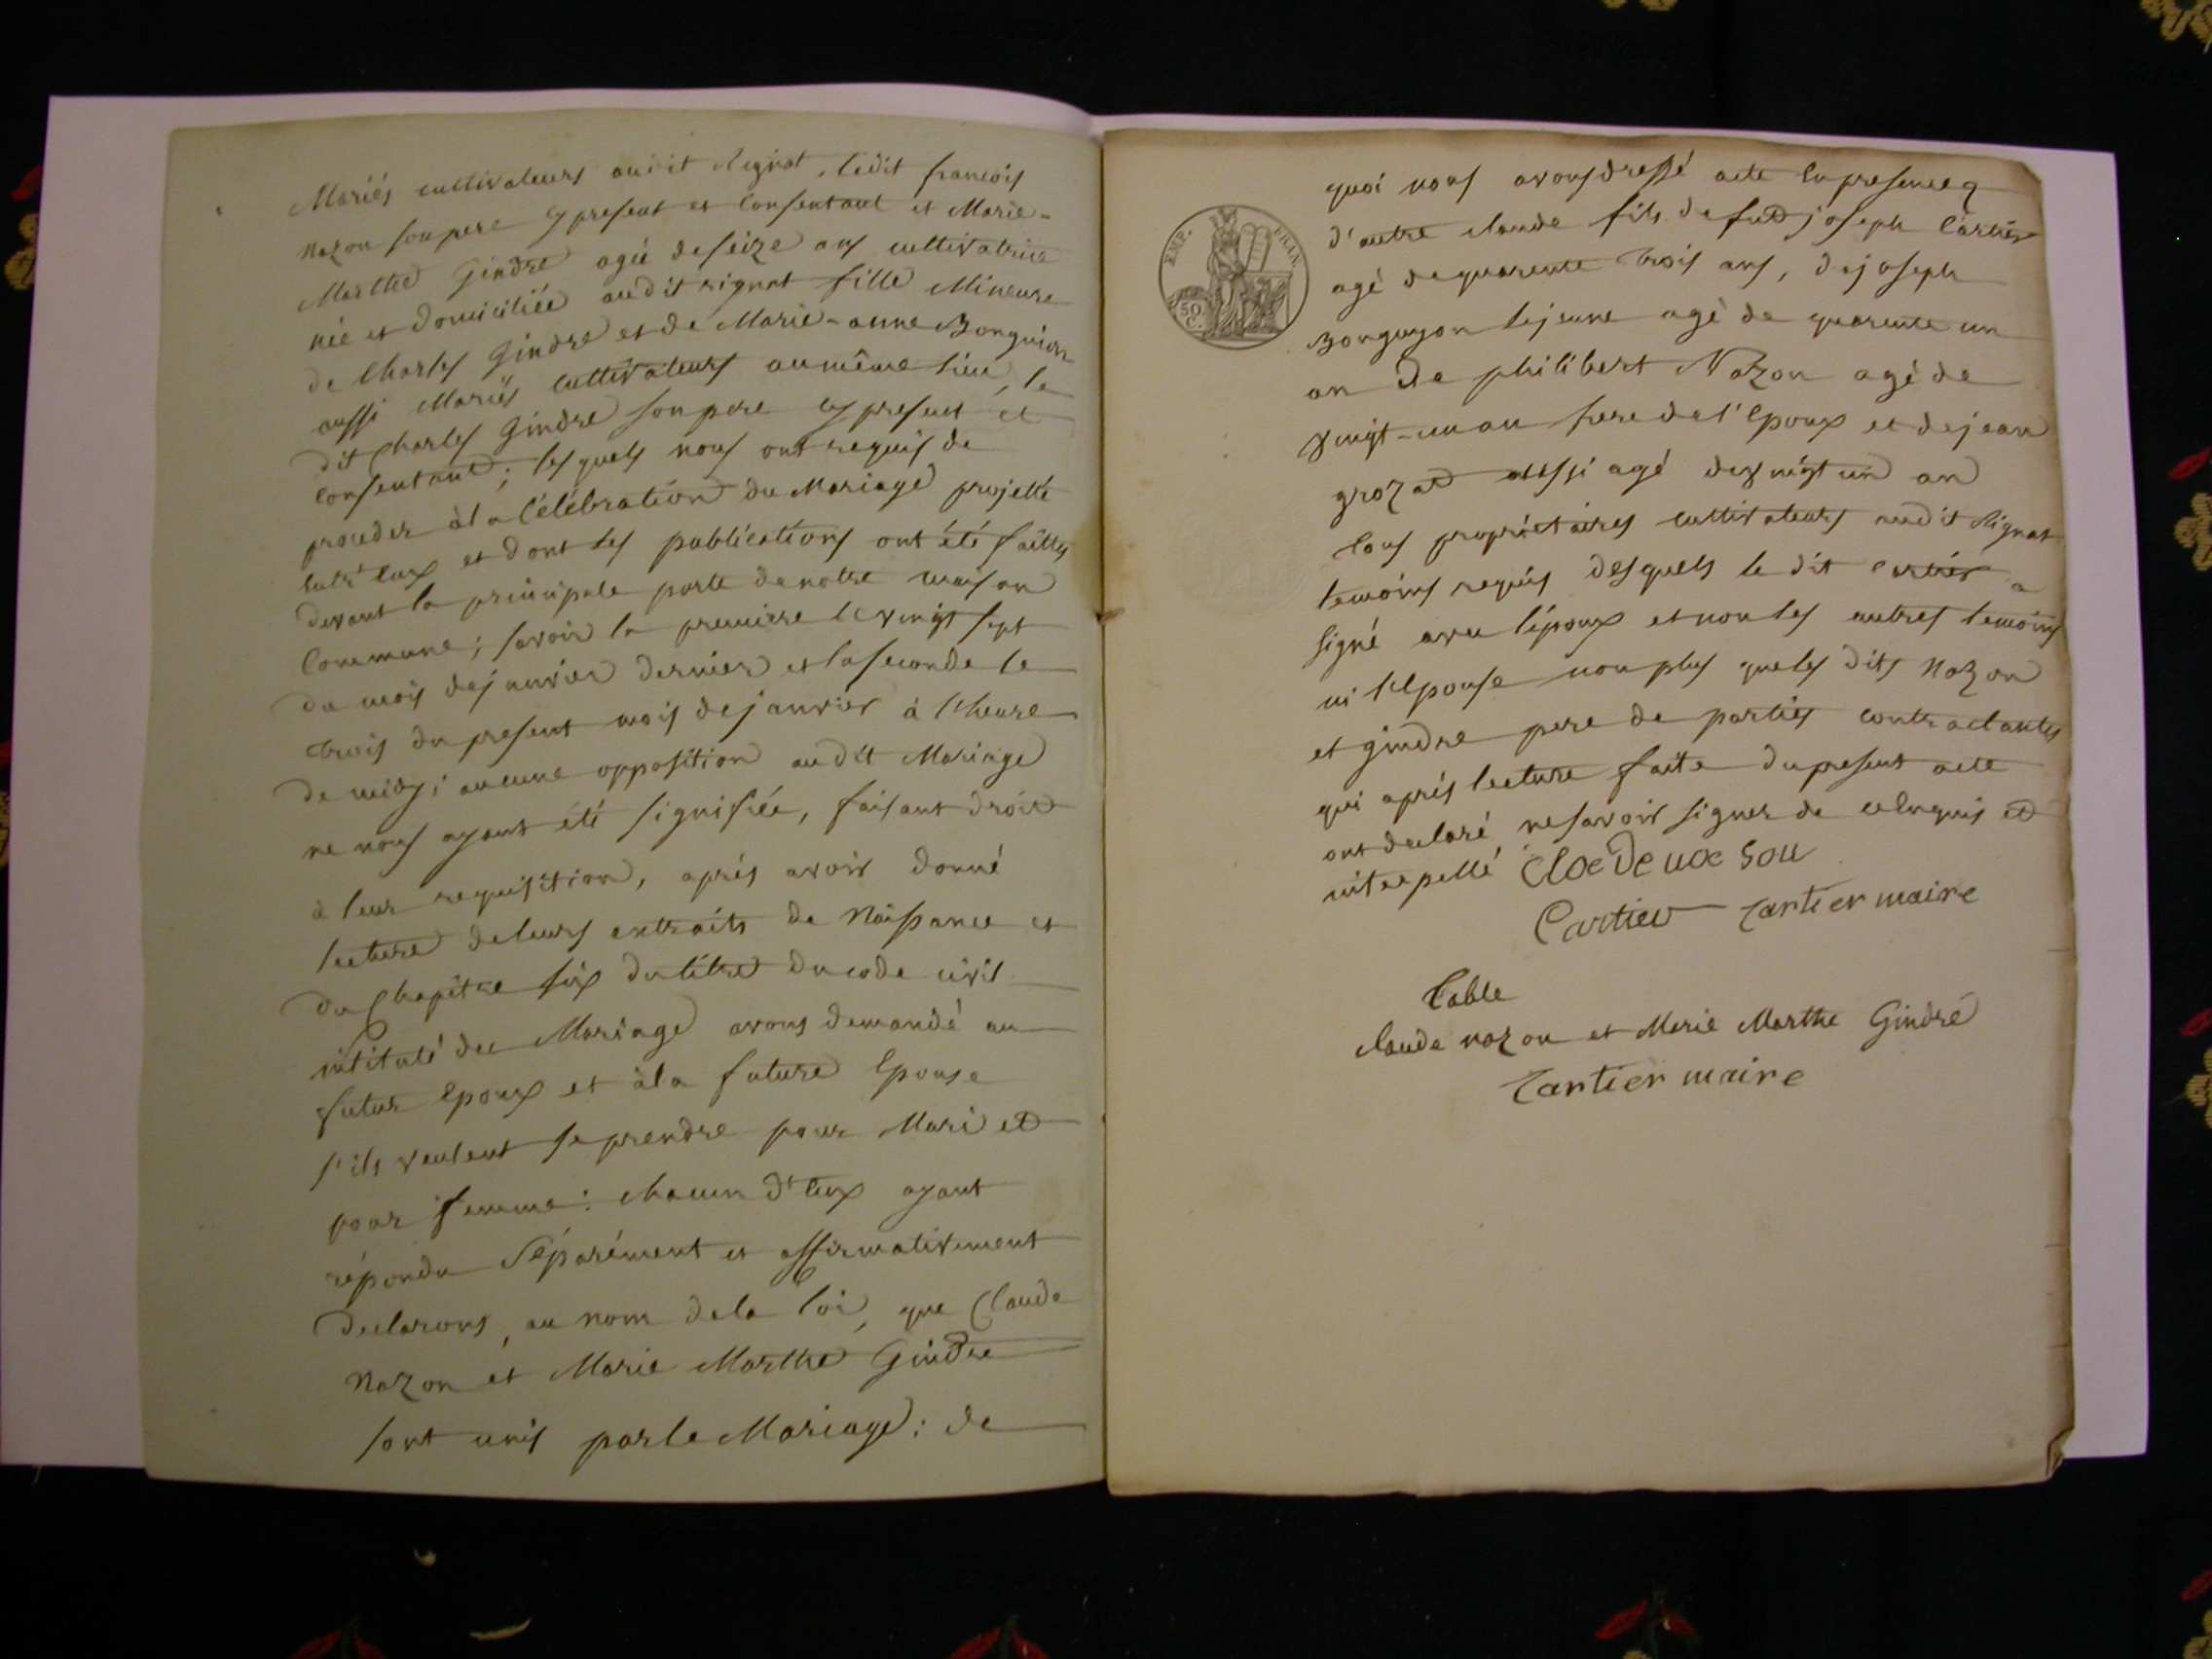 Mariés cultivateurs audit Rignat, ledit françois
Nazon son pere cy present et consentant et Marie-
Marthe Gindre agée de seize ans cultivatrice
née et domiciliée audit rignat fille Mineure
de Charles Gindre et de Marie-anne Bonguion
aussi Mariés cultivateurs au même lieu, le
dit Charles Gindre son pere cy present et
consentant; lesquels nous ont requis de
proceder à la Célébration du Mariage projetté
entr'eux et dont les publications ont été faittes
devant la principale porte de notre maison
Commune; savoir la premiere le vingt sept
du mois de janvier dernier et la seconde le
trois du present mois de janvier à l'heure
de midy; aucune opposition audit Mariage
ne nous ayant été signifiée, faisant droit
à leur requisition, aprés avoir donné
lecture de leurs extraits de Naissance et
du Chapitre six du titre du code civil
intitulé du Mariage avons demandé au
futur Epoux et à la future Epouse
s'ils veulent se prendre pour Mari et
pour femme: chacun d'eux ayant
répondu Séparément et affirmativement
Declarons, au nom de la loi, que Claude
Nazon et Marie Marthe Gindre
sont unis par le Mariage: de
quoi nous avons dressé acte en presence
d'autre claude fils de fud joseph Cartier
agé de quarente trois ans, de joseph
Bonguyon le jeune agé de quarente un
an de philibert Nazon agé de
vingt-un an frere de l'Epoux et de jean
grozat aussi agé de vingt un an
tous propriétaires cultivateurs audit Rignat
temoins requis desquels le dit cartier a
signé avec l'époux et non les autres temoins
ni l'Epouse non plus que les dits Nazon
et gindre pere de parties contractantes
qui aprés lecture faite du present acte
ont declaré ne savoir signer de ce enquis et
interpellé
Cartier Cartier maire
Table
Claude nazon et Marie Marthe Gindre
Cartier maire
EMP. FRAN.
50 C.